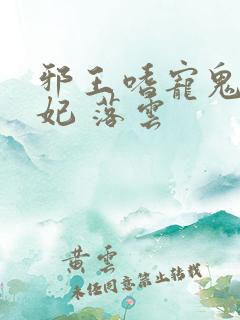 邪王嗜寵鬼
妃 落雲
黄雲
未经同意禁止转载